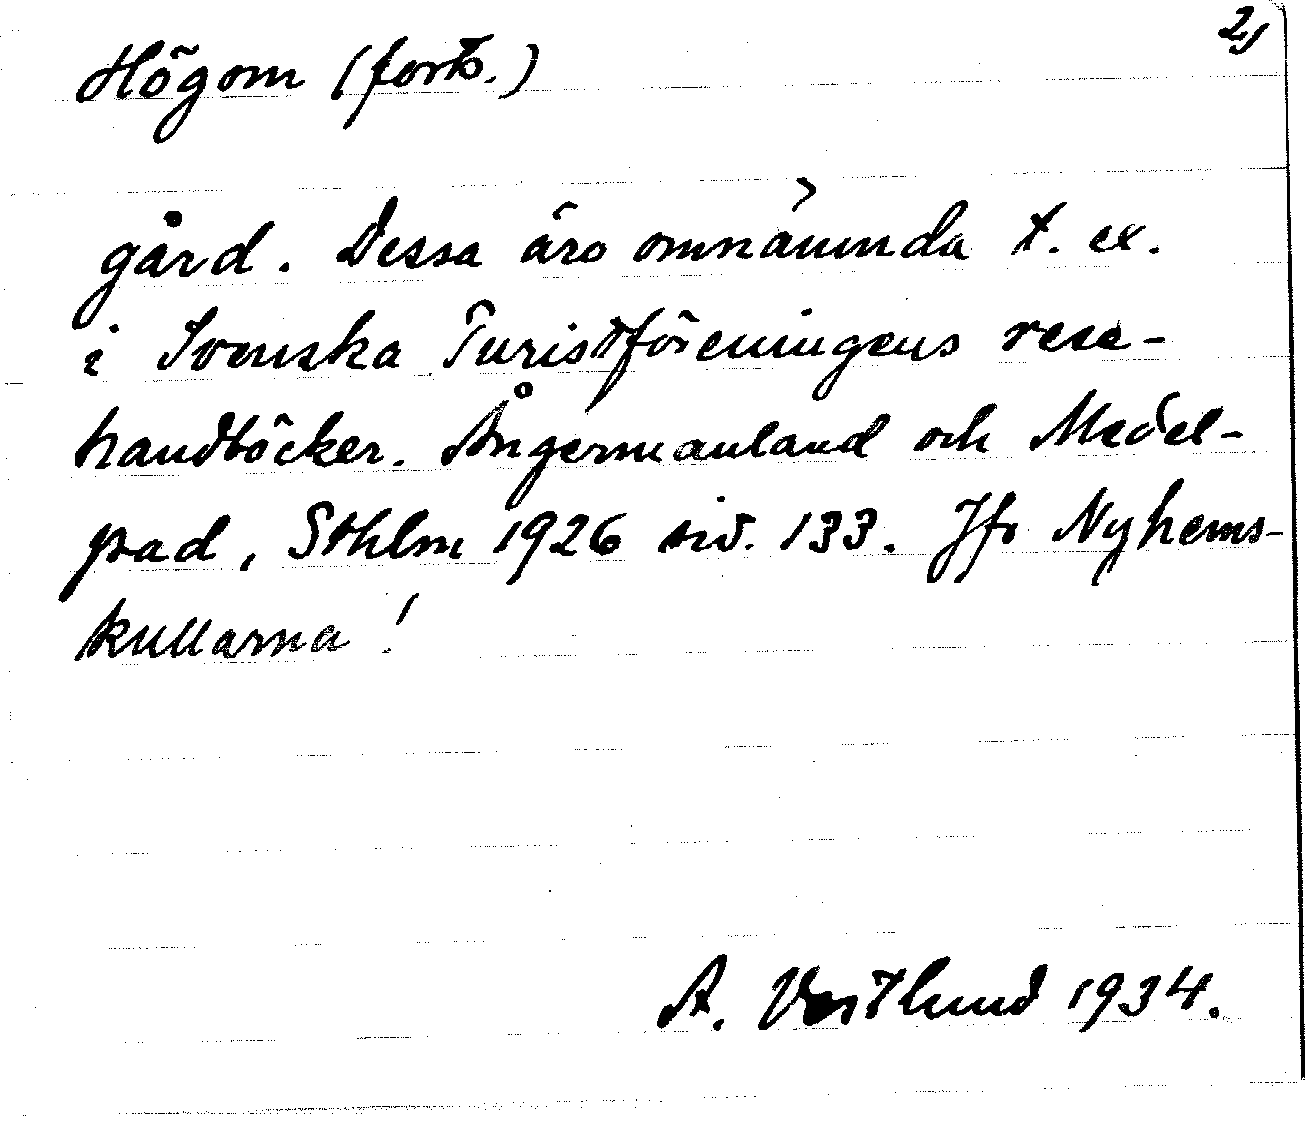 2,
Högom (forts.)
gård. Dessa äro omnämnda t. ex.
i Svenska Turistföreningens rese-
handböcker. Ångermanland och Medel-
pad, Sthlm 1926 sid. 133. Jfr Nyhems-
kullarna!
A. Vestlund 1934.